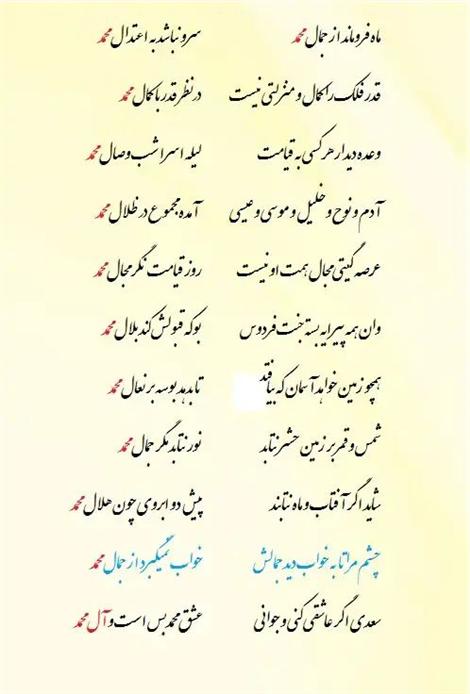 ماه فروماند از جمال محمد سرو نباشد به اعتدال محمد
قدر فلک را کمال و منزلتی نیست در نظر قدر با کمال محمد
وعده دیدار هر کسی به قیامت لیله اسرا شب وصال محمد
آدم و نوح و خلیل و موسی و عیسی آمده مجموع در ظلال محمد
عرصه گیتی مجال همت او نیست روز قیامت نگر مجال محمد
وان همه پیرایه بسته جنت فردوس بو که قبولش کند بلال محمد
همچو زمین خواهد آسمان که بیافتد تا بدهد بوسه بر نعال محمد
شمس و قمر بر زمین حشر نتابد نور نتابد مگر جمال محمد
شاید اگر آفتاب و ماه نتابند پیش دو ابروی چون هلال محمد
چشم مرا تا به خواب دید جمالش خواب نمیگیرد از جمال محمد
سعدی اگر عاشقی کنی و جوانی عشق محمد بس است و آل محمد